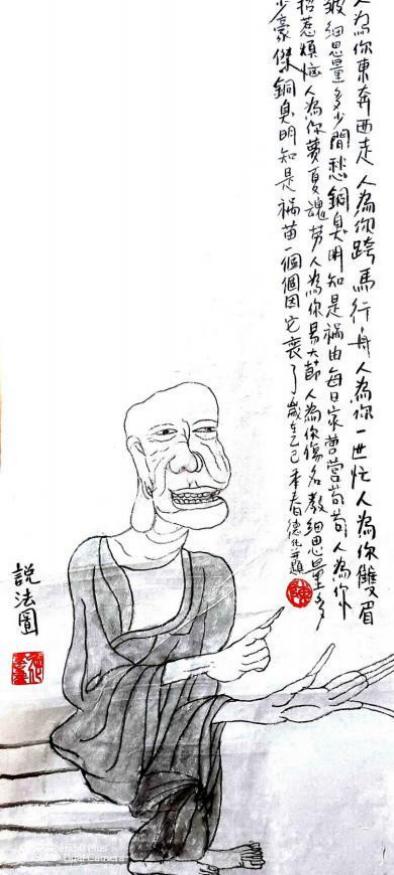 人為你東奔西走人為你跨馬行舟人為你一世忙人為你雙眉
皺細思量多少閒愁銅臭明知是禍由每日家營營苟苟人為你
招惹煩惱人為你夢夏魂勞人為你易大節人為你傷名教細思量多
少豪傑銅臭明知是祸苗一個個因它喪了歲在乙巳季春德化并題
說法圖
Plus
Dual Camera